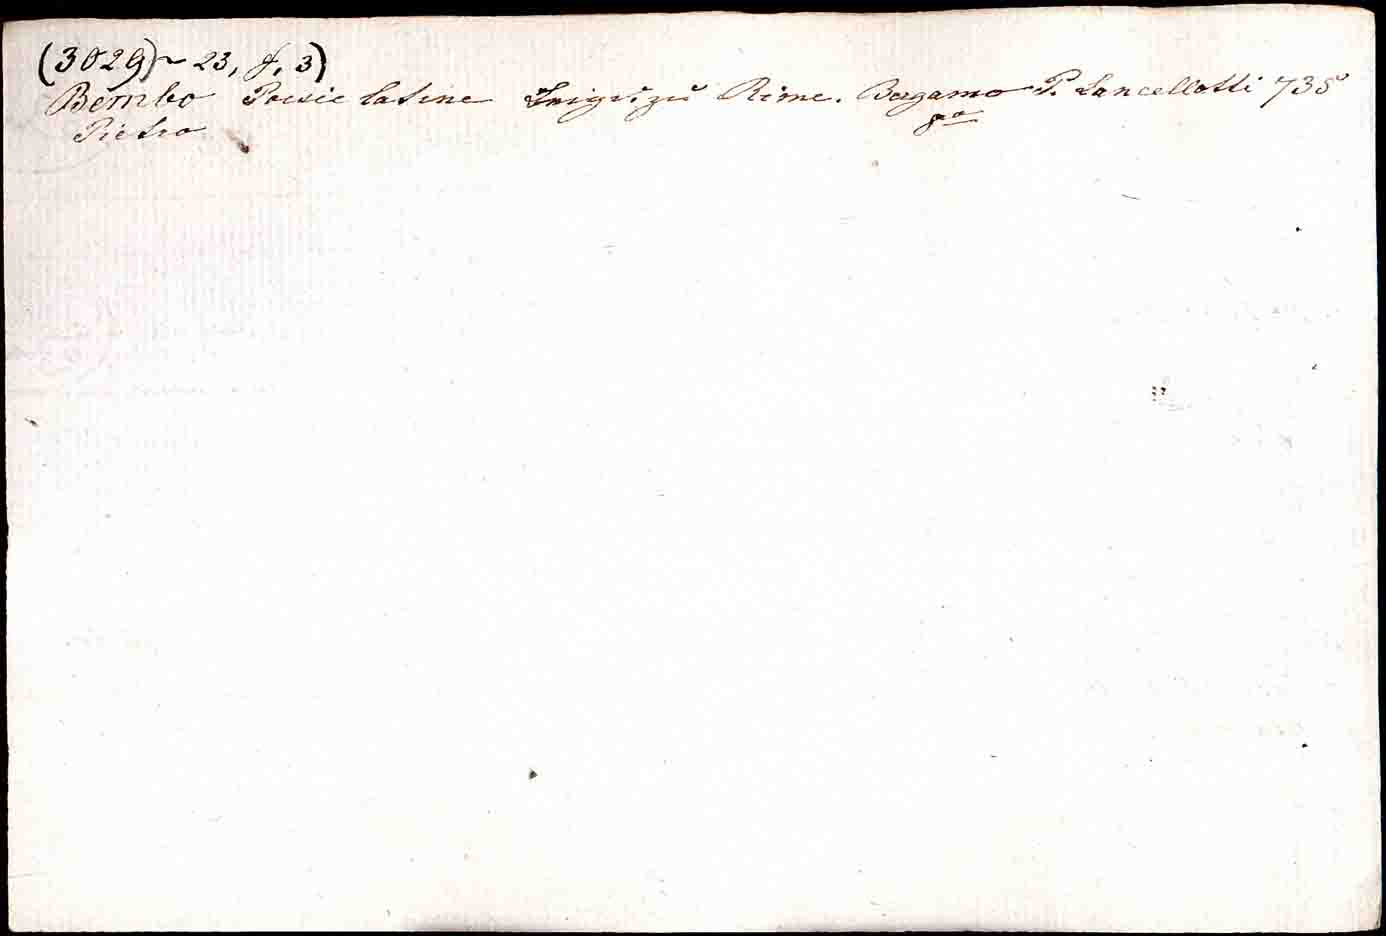 (3029)~ 23, f, 3)
Bembo Poesie latine Rime. Bergamo P. Lancellotti 735
8º
Pietro